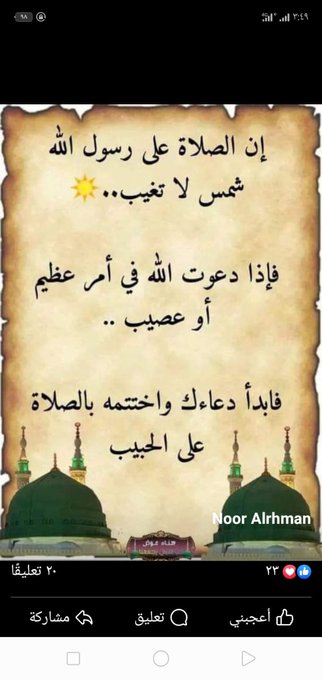 ٣:٤٩
٩٨
إن الصلاة على رسول الله
شمس لا تغيب..
فإذا دعوت الله في أمر عظيم
أو عصيب ..
فابدأ دعاءك واختتمه بالصلاة
على الحبيب
Noor Alrhman
هناء عوض
٢٣
٢٠ تعليقًا
أعجبني
تعليق
مشاركة